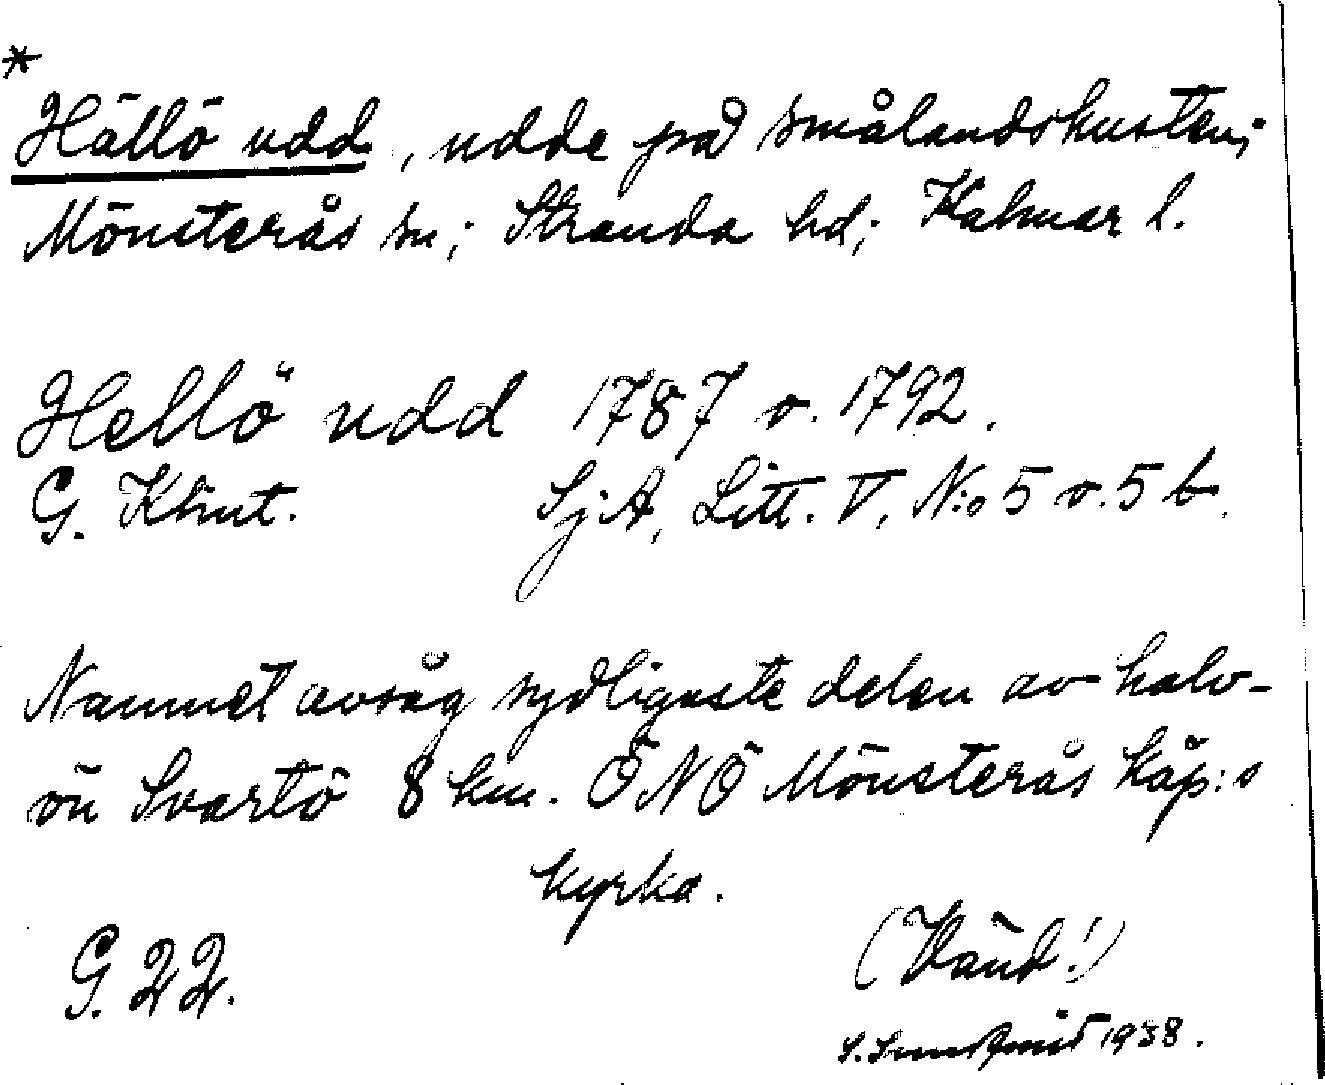 *
Hällö udd, udde på smålandskusten;
Mönsterås sn; Stranda hd; Kalmar l.
Hellö udd 1787 o. 1792.
G. Klint. SjA, Litt. V, N:o 5 o. 5 b.
Namnet avsåg sydligaste delen av halv-
ön Svartö 8 km. ÖNÖ Mönsterås köp:s
kyrka.
G. 22.
(Vänd!)
S. 1938.